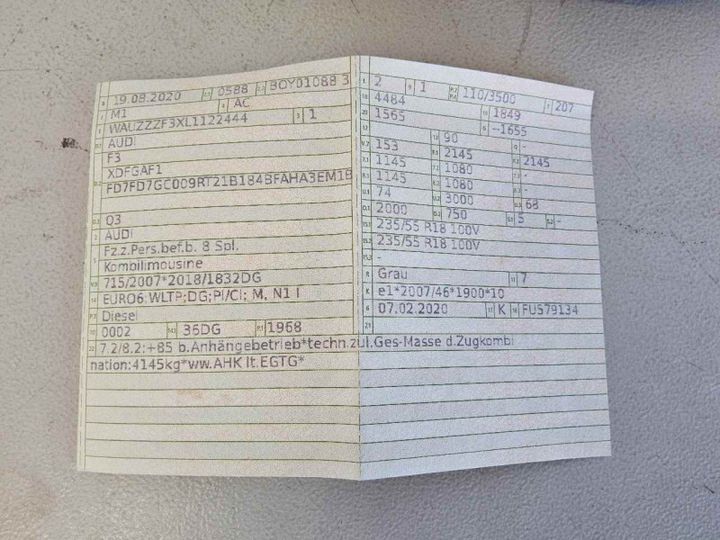 19.08.2020 0588 BOY01088 3
M1 AC
WAUZZZF3XL1122444 1
AUDI
F3
XDFGAF1
FD7FD7GC009RT21B184BFAHA3EM1B
Q3
AUDI
Fz.z.Pers.bef.b. 8 Spl.
Kombilimousine
715/2007*2018/1832DG
EURO6;WLTP;DG;PI/CI; M, N1 I
Diesel
0002 36DG 1968
2 1 110/3500 207
4484 1849
1565 --1655
90 -
153 2145 2145
1145 1080 -
1145 1080 -
74 3000 68
2000 750 5 -
235/55 R18 100V
235/55 R18 100V
-
Grau 7
e1*2007/46*1900*10
07.02.2020 K FU579134
7.2/8.2:+85 b.Anhängebetrieb*techn.zul.Ges-Masse d.Zugkombi
nation:4145kg*ww.AHK lt.EGTG*